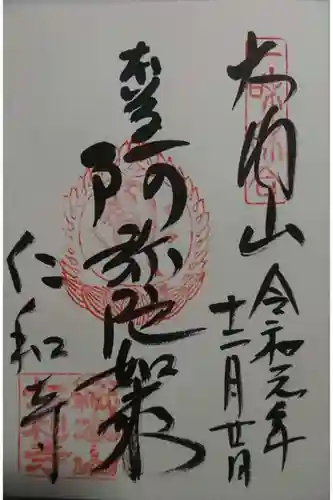 大内山
令和元年
十二月廿日
本尊
阿弥陀如来
仁和寺